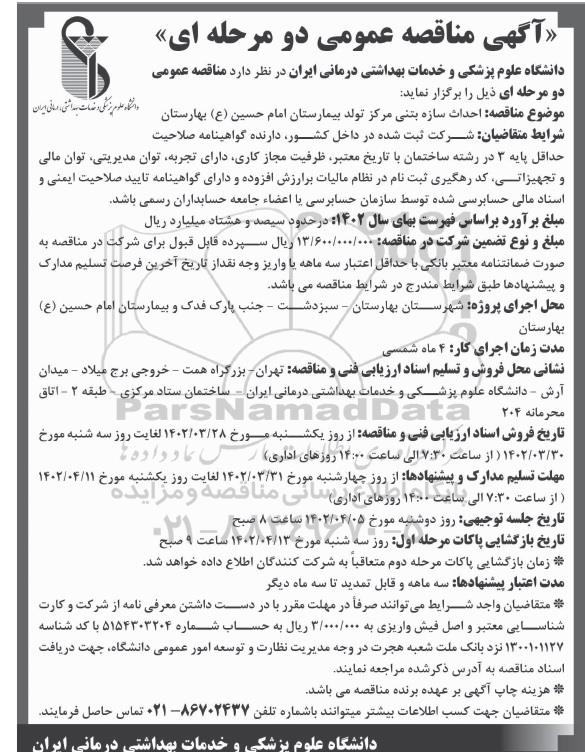 «آگهی مناقصه عمومی دو مرحله ای»
دانشگاه علوم پزشکی و خدمات بهداشتی، درمانی ایران
دانشگاه علوم پزشکی و خدمات بهداشتی درمانی ایران در نظر دارد مناقصه عمومی
دو مرحله ای ذیل را برگزار نماید:
موضوع مناقصه: احداث سازه بتنی مرکز تولد بیمارستان امام حسین (ع) بهارستان
شرایط متقاضیان: شرکت ثبت شده در داخل کشور، دارنده گواهینامه صلاحیت
حداقل پایه ۳ در رشته ساختمان با تاریخ معتبر، ظرفیت مجاز کاری، دارای تجربه، توان مدیریتی، توان مالی
و تجهیزاتی، کد رهگیری ثبت نام در نظام مالیات برارزش افزوده و دارای گواهینامه تایید صلاحیت ایمنی و
اسناد مالی حسابرسی شده توسط سازمان حسابرسی یا اعضاء جامعه حسابداران رسمی باشد.
مبلغ برآورد براساس فهرست بهای سال ۱۴۰۲: درحدود سیصد و هشتاد میلیارد ریال
مبلغ و نوع تضمین شرکت در مناقصه: ۱۳/۶۰۰/۰۰۰/۰۰۰ ریال سپرده قابل قبول برای شرکت در مناقصه به
صورت ضمانتنامه معتبر بانکی با حداقل اعتبار سه ماهه یا واریز وجه نقداز تاریخ آخرین فرصت تسلیم مدارک
و پیشنهادها طبق شرایط مندرج در شرایط مناقصه می باشد.
محل اجرای پروژه: شهرستان بهارستان - سبزدشت - جنب پارک فدک و بیمارستان امام حسین (ع)
بهارستان
مدت زمان اجرای کار: ۴ ماه شمسی
نشانی محل فروش و تسلیم اسناد ارزیابی فنی و مناقصه: تهران- بزرگراه همت - خروجی برج میلاد - میدان
آرش - دانشگاه علوم پزشکی و خدمات بهداشتی درمانی ایران - ساختمان ستاد مرکزی - طبقه ۲ - اتاق
محرمانه ۲۰۴
ParsNamadData
تاریخ فروش اسناد ارزیابی فنی و مناقصه: از روز یکشنبه مورخ ۱۴۰۲/۰۳/۲۸ لغایت روز سه شنبه مورخ
۱۴۰۲/۰۳/۳۰ ( از ساعت ۷:۳۰ الی ساعت ۱۴:۰۰ روزهای اداری)
مهلت تسلیم مدارک و پیشنهادها: از روز چهارشنبه مورخ ۱۴۰۲/۰۳/۳۱ لغایت روز یکشنبه مورخ ۱۴۰۲/۰۴/۱۱
( از ساعت ۷:۳۰ الی ساعت ۱۴:۰۰ روزهای اداری)
تاریخ جلسه توجیهی: روز دوشنبه مورخ ۱۴۰۲/۰۴/۰۵ ساعت ۸ صبح
تاریخ بازگشایی پاکات مرحله اول: روز سه شنبه مورخ ۱۴۰۲/۰۴/۱۳ ساعت ۹ صبح
* زمان بازگشایی پاکات مرحله دوم متعاقباً به شرکت کنندگان اطلاع داده خواهد شد.
مدت اعتبار پیشنهادها: سه ماهه و قابل تمدید تا سه ماه دیگر
* متقاضیان واجد شرایط می‌توانند صرفاً در مهلت مقرر با در دست داشتن معرفی نامه از شرکت و کارت
شناسایی معتبر و اصل فیش واریزی به ۳/۰۰۰/۰۰۰ ریال به حساب شماره ۵۱۵۴۳۰۳۲۰۴ با کد شناسه
۱۳۰۰۱۰۱۱۲۷ نزد بانک ملت شعبه هجرت در وجه مدیریت نظارت و توسعه امور عمومی دانشگاه، جهت دریافت
اسناد مناقصه به آدرس ذکرشده مراجعه نمایند.
* هزینه چاپ آگهی بر عهده برنده مناقصه می باشد.
* متقاضیان جهت کسب اطلاعات بیشتر میتوانند باشماره تلفن ۸۶۷۰۲۴۳۷-۰۲۱ تماس حاصل فرمایند.
دانشگاه علوم پزشکی و خدمات بهداشتی درمانی ایران